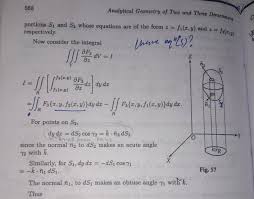 568 Analytical Geometry of Two and Three Dimensions
portions S₁ and S₂ whose equations are of the form z = f₁(x, y) and z = f₂(x, y)
respectively.
Now consider the integral
∭ ∂F₃/∂z dV = I
I = ∬ [∫ ∂F₃/∂z dz] dy dx
= ∬ F₃(x, y, f₂(x, y)) dy dx − ∬ F₃(x, y, f₁(x, y)) dy dx
For points on S₂,
dy dx = dS₂ cos γ₂ = k · n₂ dS₂
since the normal n₂ to dS₂ makes an acute angle
γ₂ with k.
Similarly, for S₁, dy dx = −dS₁ cos γ₁
= −k · n₁ dS₁
The normal n₁, to dS₁ makes an obtuse angle γ₁ with k.
Thus
Z
Y
X
Fig. 57